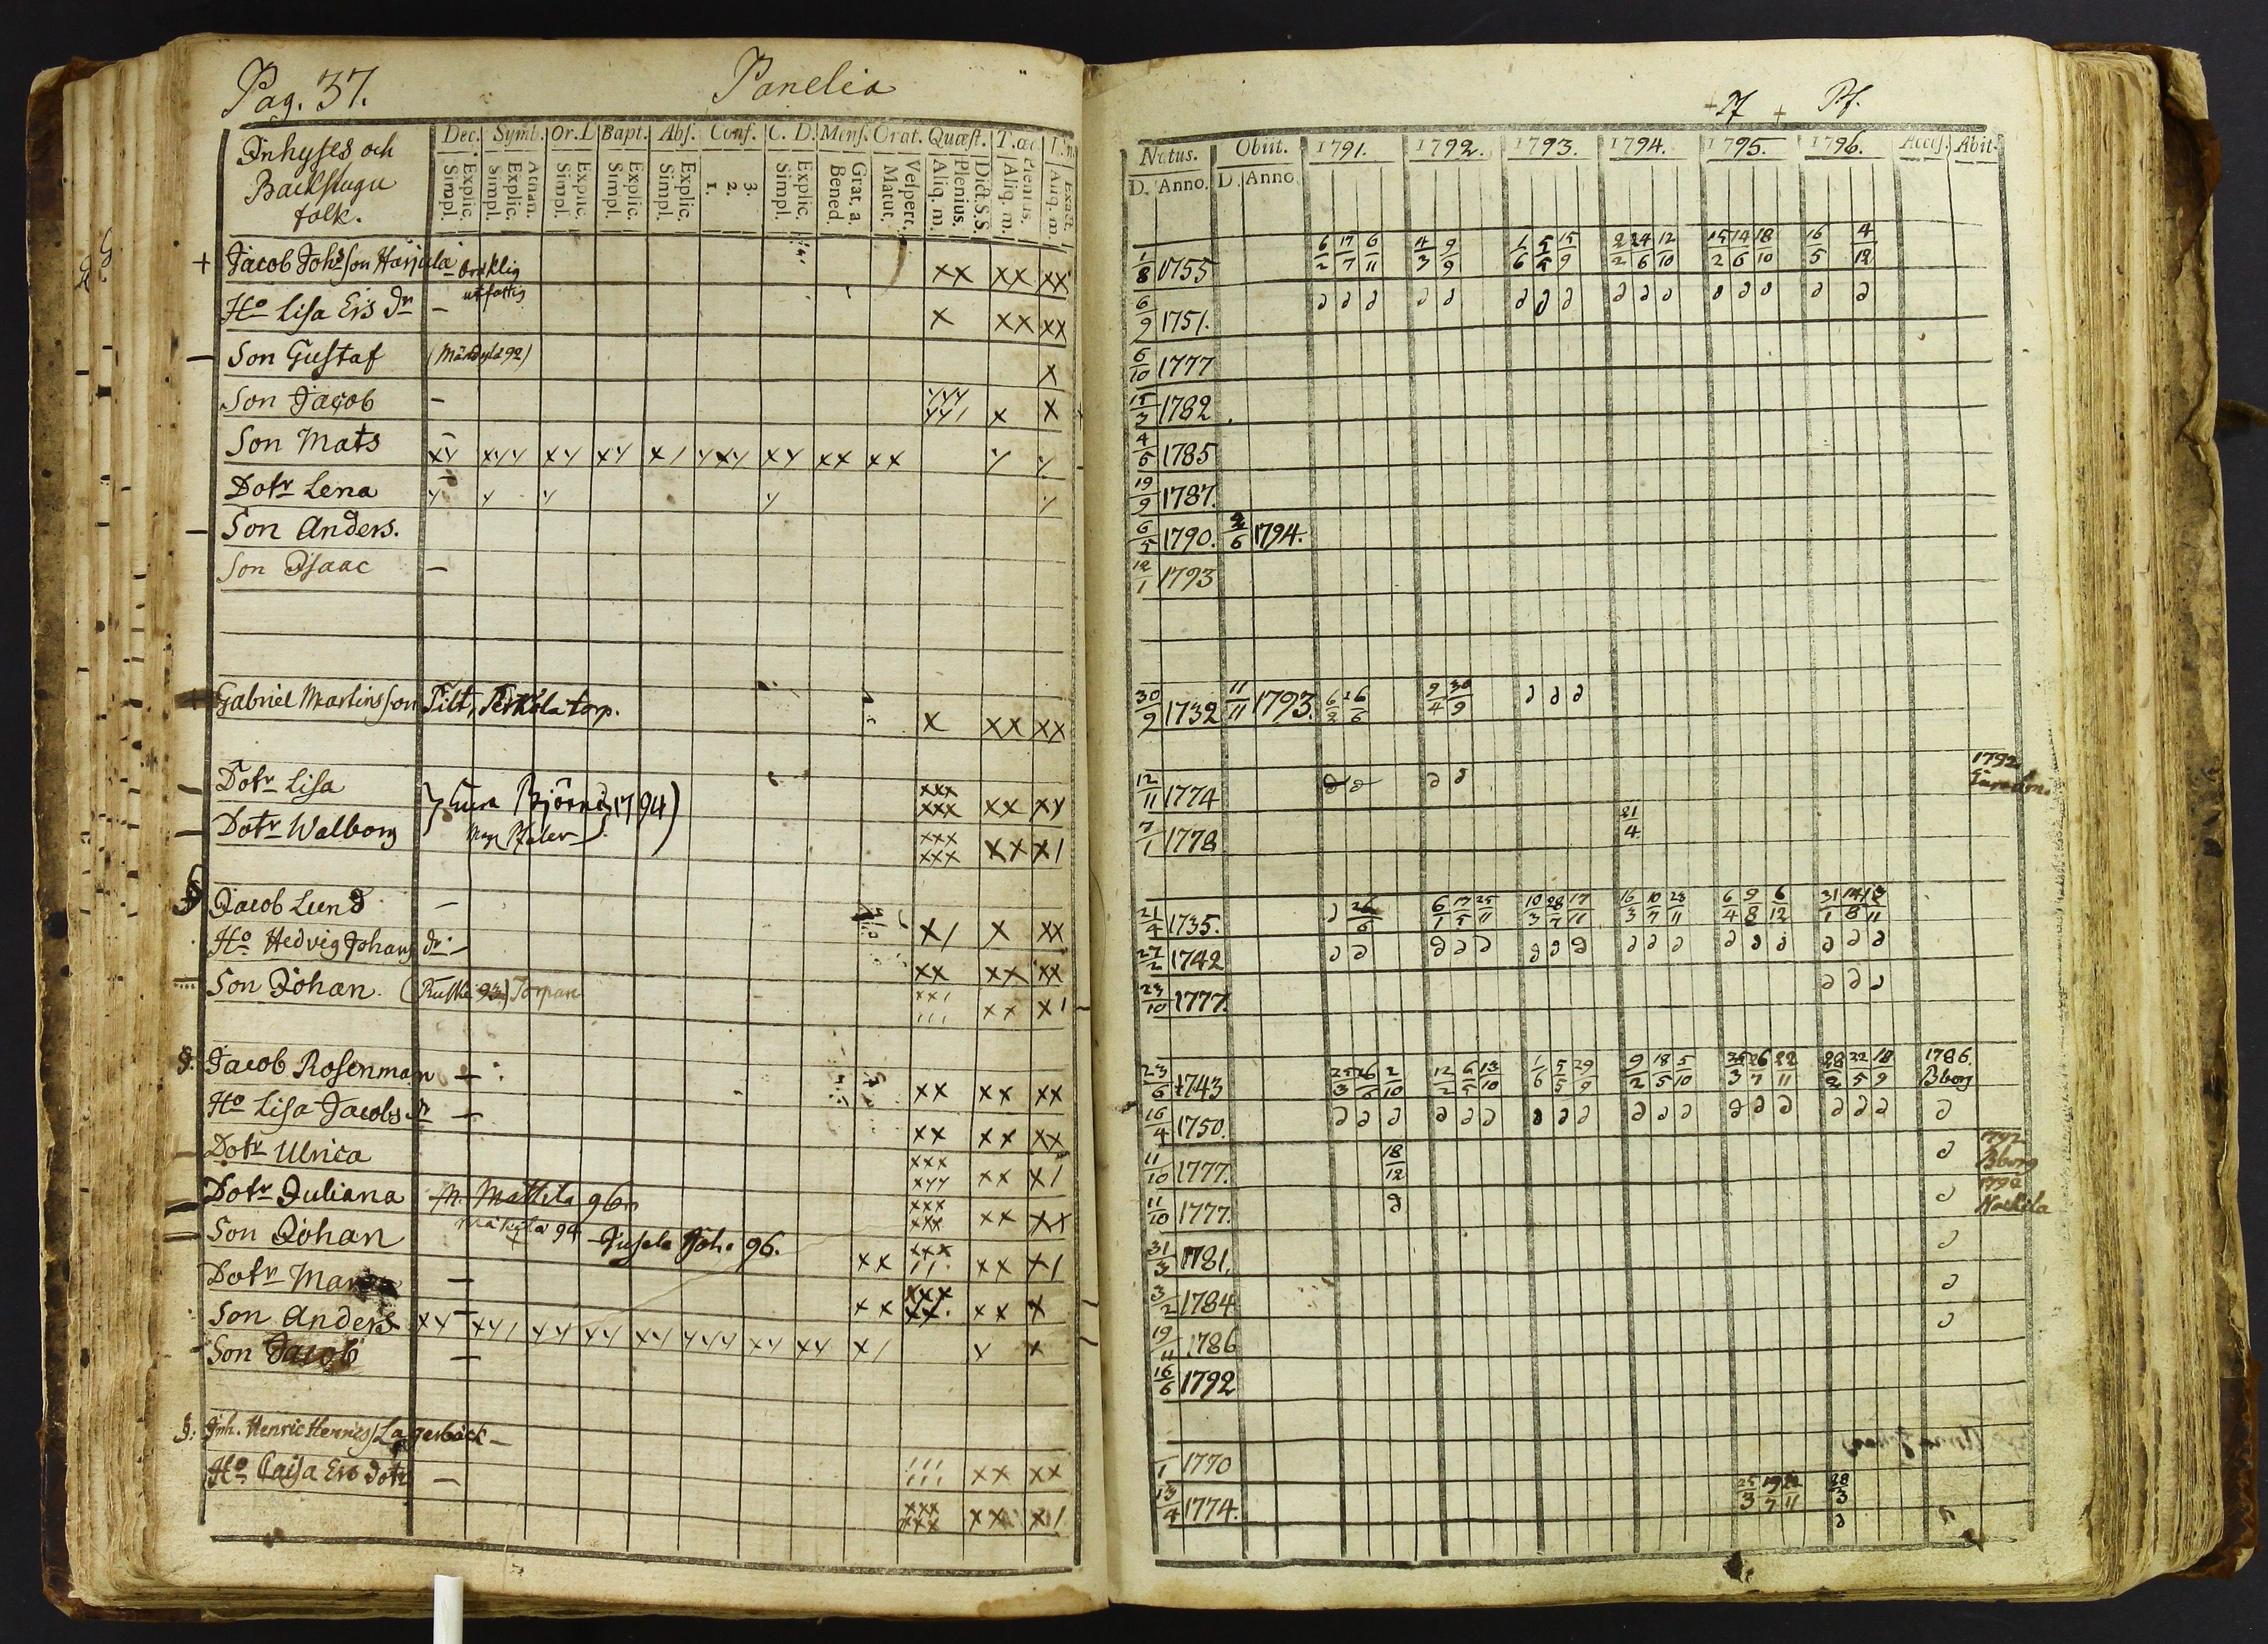 Pag. 37. Panelia
Inhyses och
Backstugu
folk.
Dec. Symb. Or. D. Bapt. Abs. Conf. C. D. Mens. Orat. Quæst. T. œc
Explic. Simpl. Athan. Explic. Simpl. Explic. Simpl. Explic. Simpl. Explic. Simpl. 3. 2. 1. Explic. Simpl. Grat. a. Bened. Vespert. Matut. Dict. S. S. Plenius. Aliq. m. Plenius. Aliq. m. Exact. Aliq. m.
+ Jacob Johsson Harjula xx xx xx
utfattig
Ho Lisa Ers dr – x xx xx
– Son Gustaf x
Son Jacob – x x
Son Mats –
Dotr Lena
– Son Anders.
Son Isaac –
Gabriel Martinsson Tilt, torp. x xx xx
– Dotr Lisa xxx xxx xx xy
– Dotr Walborg xxx xxx xx x1
Björni 1794)
Jacob Lund – x1 x xx
Ho Hedvig Johans dr – xx xx xx
Son Johan. 93) Torpare xx x1
§. Jacob Rosenman – xx xx xx
Ho Lisa Jacobs dr – xx xx xx
– Dotr Ulrica xx x1
– Dotr Juliana Mattila 96 xx xx
Son Johan 94 Joh. 96. xx xx x1
Dotr Maria – xx xx x
Son Anders
Son Jacob –
§: Inh. Henric Henricss Lagerbäck –
xx xx
Ho Caisa Ers dotr – xxx xxx xx x1
Natus. Obiit. 1791. 1792. 1793. 1794. 1795. 1796. Access. Abit.
D. Anno. D. Anno
1/8 1755 6/2 17/7 6/11 11/3 9/9 1/6 5/5 15/9 2/2 24/6 12/10 15/2 14/6 18/10 16/5 4/12
6/9 1751. ∂ ∂ ∂ ∂ ∂ ∂ ∂ ∂ ∂ ∂ ∂ ∂ ∂ ∂ ∂ ∂
6/10 1777
15/3 1782
4/6 1785
19/9 1787.
6/5 1790. 2/6 1794.
12/1 1793
30/9 1732 11/11 1793. 6/2 16/6 9/4 30/9 ∂ ∂ ∂
12/11 1774 ∂ ∂ ∂ ∂ 1792
7/1 1778 21/4
21/4 1735. ∂ 26/6 6/1 17/5 25/11 10/3 28/7 17/11 16/3 10/7 23/11 6/4 9/8 6/12 31/1 14/8 13/11
27/2 1742 ∂ ∂ ∂ ∂ ∂ ∂ ∂ ∂ ∂ ∂ ∂ ∂ ∂ ∂ ∂ ∂ ∂
23/10 1777. ∂ ∂ ∂
23/6 1743 25/3 26/6 2/10 12/2 6/5 13/10 1/6 5/5 29/9 9/2 18/5 5/10 25/3 26/7 22/11 28/2 22/5 18/9 1786. Bborg
16/4 1750. ∂ ∂ ∂ ∂ ∂ ∂ ∂ ∂ ∂ ∂ ∂ ∂ ∂ ∂ ∂ ∂ ∂ ∂ ∂
11/10 1777. 18/12 ∂ 1792 Bborg
11/10 1777. ∂ ∂
31/3 1781. ∂
3/2 1784 ∂
19/11 1786 ∂
16/6 1792
1 1770
13/4 1774. 25/3 19/7 22/11 28/3
∂